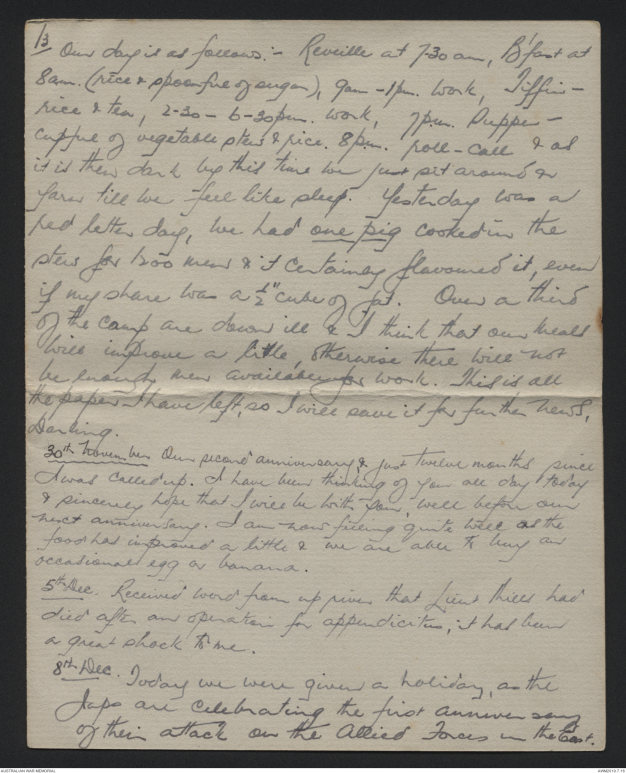 13
Our day is as follows:- Reveille at 7-30 am, B'fast at
8am. (rice & spoonful of sugar), 9am - 1pm. Work, Tiffin -
rice & tea, 2-30 - 6-30pm. Work, 7p.m. Supper -
cupful of vegetable stew & rice. 8p.m. roll-call & as
it is then dark by this time we just sit around &
yarn till we feel like sleep. Yesterday was a
red letter day, we had one pig cooked in the
stew for 1200 men & it certainly flavoured it, even
if my share was a ½" cube of fat. Over a third
of the camp are down ill & I think that our meals
will improve a little, otherwise there will not
be enough men available for work. This is all
the paper I have left, so I will save it for further news,
Darling.
30th November Our second anniversary & just twelve months since
I was called up. I have been thinking of you all day today
& sincerely hope that I will be with you, well before our
next anniversary. I am now feeling quite well as the
food has improved a little & we are able to buy an
occasional egg or banana.
5th Dec. Received word from up river that Lieut had
died after an operation for appendicitis, it has been
a great shock to me.
8th Dec. Today we were given a holiday, as the
Japs are celebrating the first anniversary
of their attack on the Allied Forces in the East.
AUSTRALIAN WAR MEMORIAL